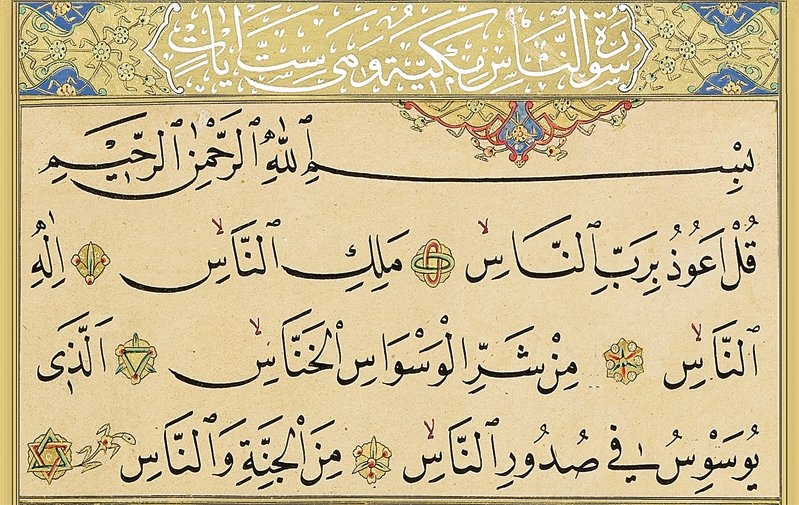 سُورَةُ النَّاسِ مَكِّيَّةٌ وَهِيَ سِتُّ اٰيَاتٍ
بِسْمِ اللّٰهِ الرَّحْمٰنِ الرَّحٖيمِ
قُلْ اَعُوذُ بِرَبِّ النَّاسِ ۙ مَلِكِ النَّاسِ ۙ اِلٰهِ
النَّاسِ ۙ مِنْ شَرِّ الْوَسْوَاسِ الْخَنَّاسِ ۙ اَلَّذٖى
يُوَسْوِسُ فٖي صُدُورِ النَّاسِ ۙ مِنَ الْجِنَّةِ وَالنَّاسِ